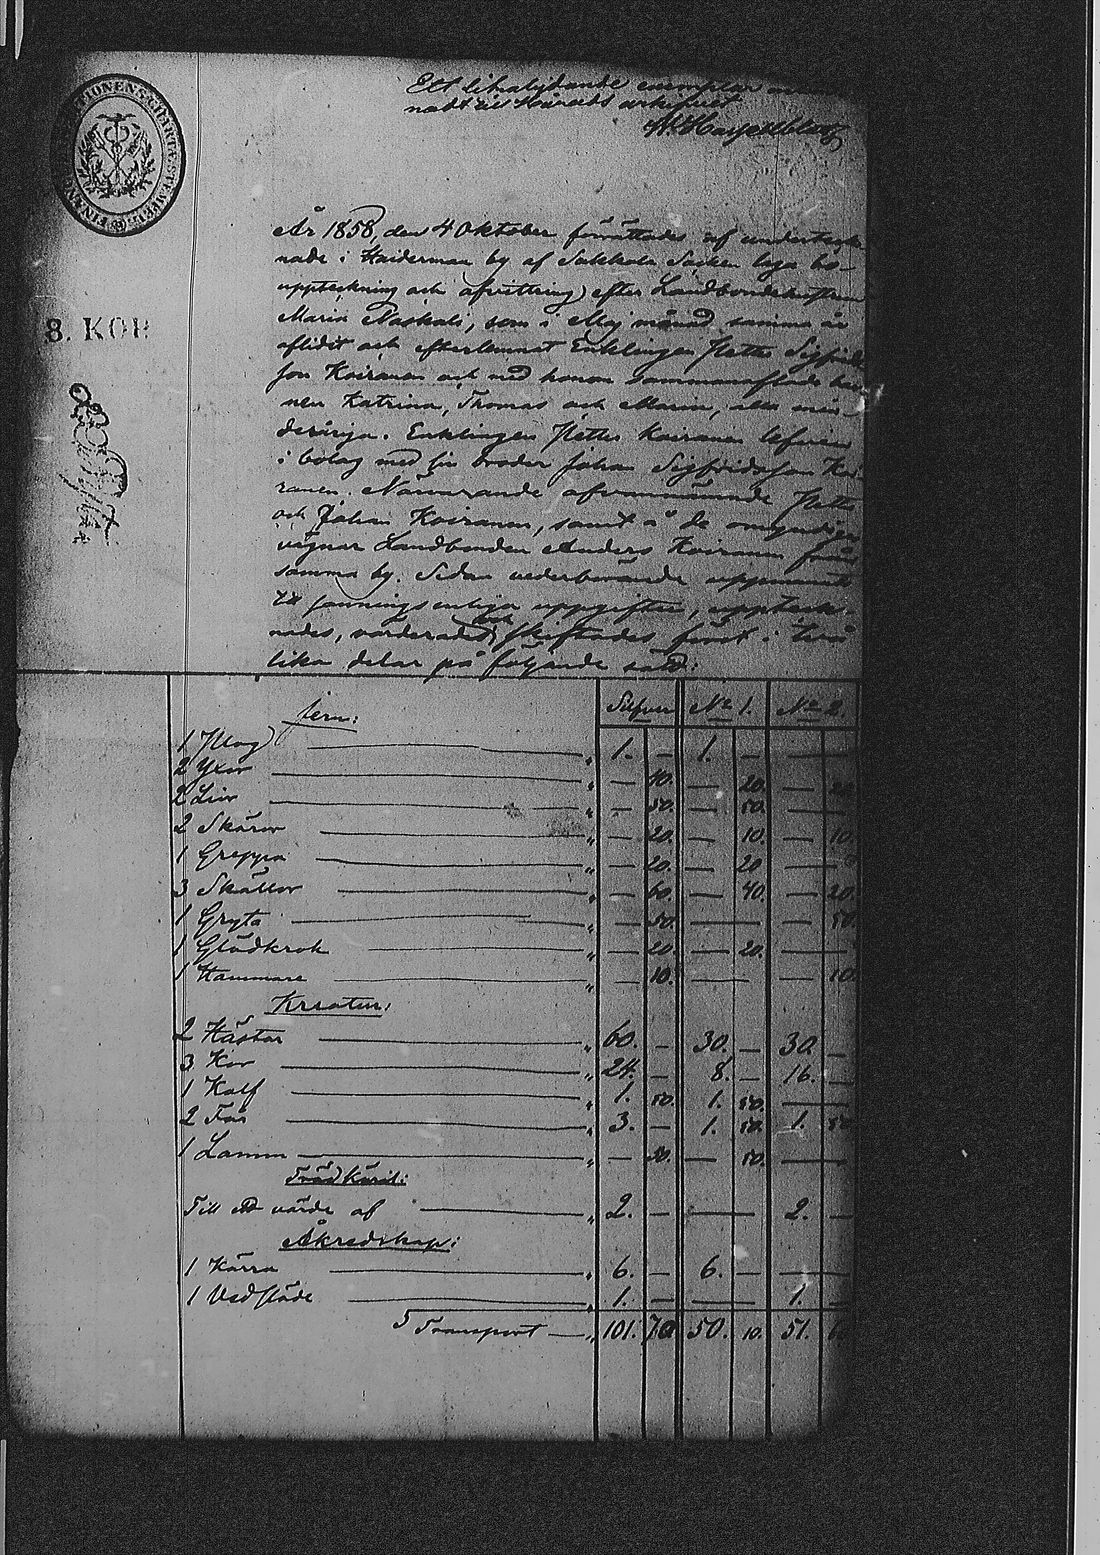 Ett likalydande exemplar
nadt till Häradts arkivet
FINANS EXPEDITIONENS CHARTÆ STEMPEL
8. KOP.
År 1858, den 4 Oktober förrättades af underteck-
nade i Haiderman by af Sakkola Socken laga bo-
uppteckning och afvittring efter Landbondehustrun
Maria Paskali, som i Maj månad samma år
aflidit och efterlemnat Enklingen Petter Sigfrids-
son Koiranen och med honom sammanaflade bar-
nen Katrina, Thomas och Maria, alla min-
deråriga. Enklingen Petter Koiranen lefver
i bolag med sin broder Johan Sigfridsson Koi-
ranen. Närvarande ofvannämnde Petter
och Johan Koiranen, samt å de omyndigas
vägnar Landbonden Anders Koiranen från
samma by. Sedan vederbörande uppmanats
till sanningsenliga uppgifter, uppteck-
nades, värderades och skiftades först i två
lika delar på följande sätt:
Jern: Silfver No 1. No 2.
1 Plog " 1. — 1. — —
2 Yxor " — 40. — 20. — 20
2 Liar " — 50. — 50. —
2 Skäror " — 20. — 10. — 10
1 Greppa " — 20. — 20 —
3 Skällor " — 60. — 40. — 20.
1 Gryta " — 50. — — 50.
1 Glödkrok " — 20. — 20. —
1 Hammare " — 10. — — 10
Kreatur:
2 Hästar " 60. — 30. — 30. —
3 Kor " 24. — 8. — 16. —
1 Kalf " 1. 50. 1. 50. —
2 Får " 3. — 1. 50. 1. 50
1 Lamm " — 50. — 50. —
Trädkäril:
Till ett värde af " 2. — — 2. —
Åkredskap:
1 Kärra " 6. — 6. — —
1 Vedsläde " 1. — — 1. —
Transport — " 101. 70 50. 10. 51. 60